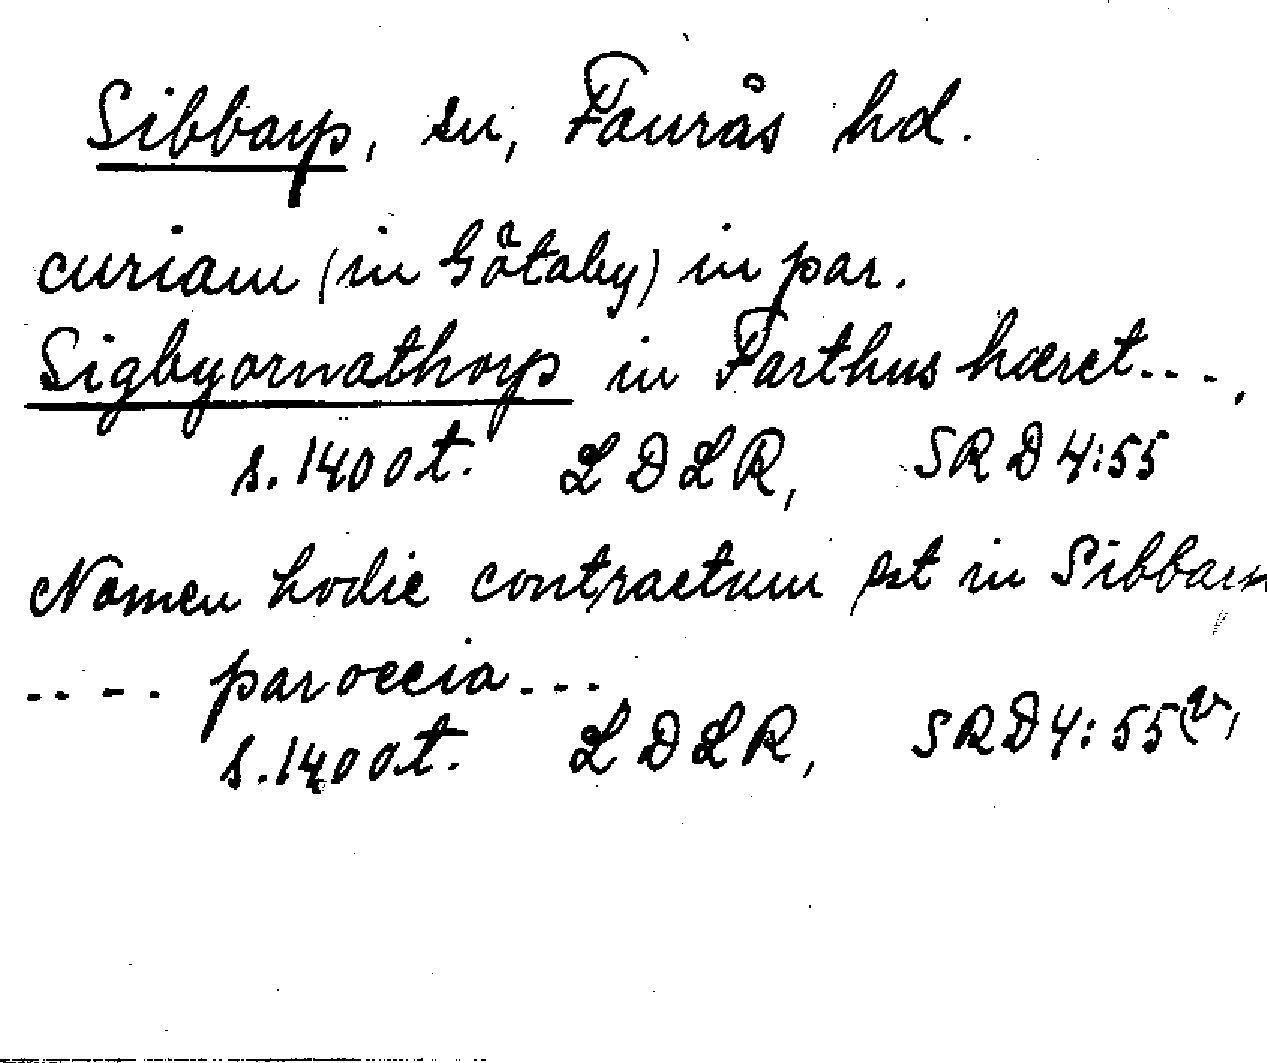 Sibbarp, sn, Faurås hd.
curiam (in Götaby) in par.
Sigbyornathorp in Farthushæret...,
s. 1400t. LDLR, SRD 4:55
Nomen hodie contractum est in Sibbarp
.... paroccia...
s. 1400t. LDLR, SRD 4:55